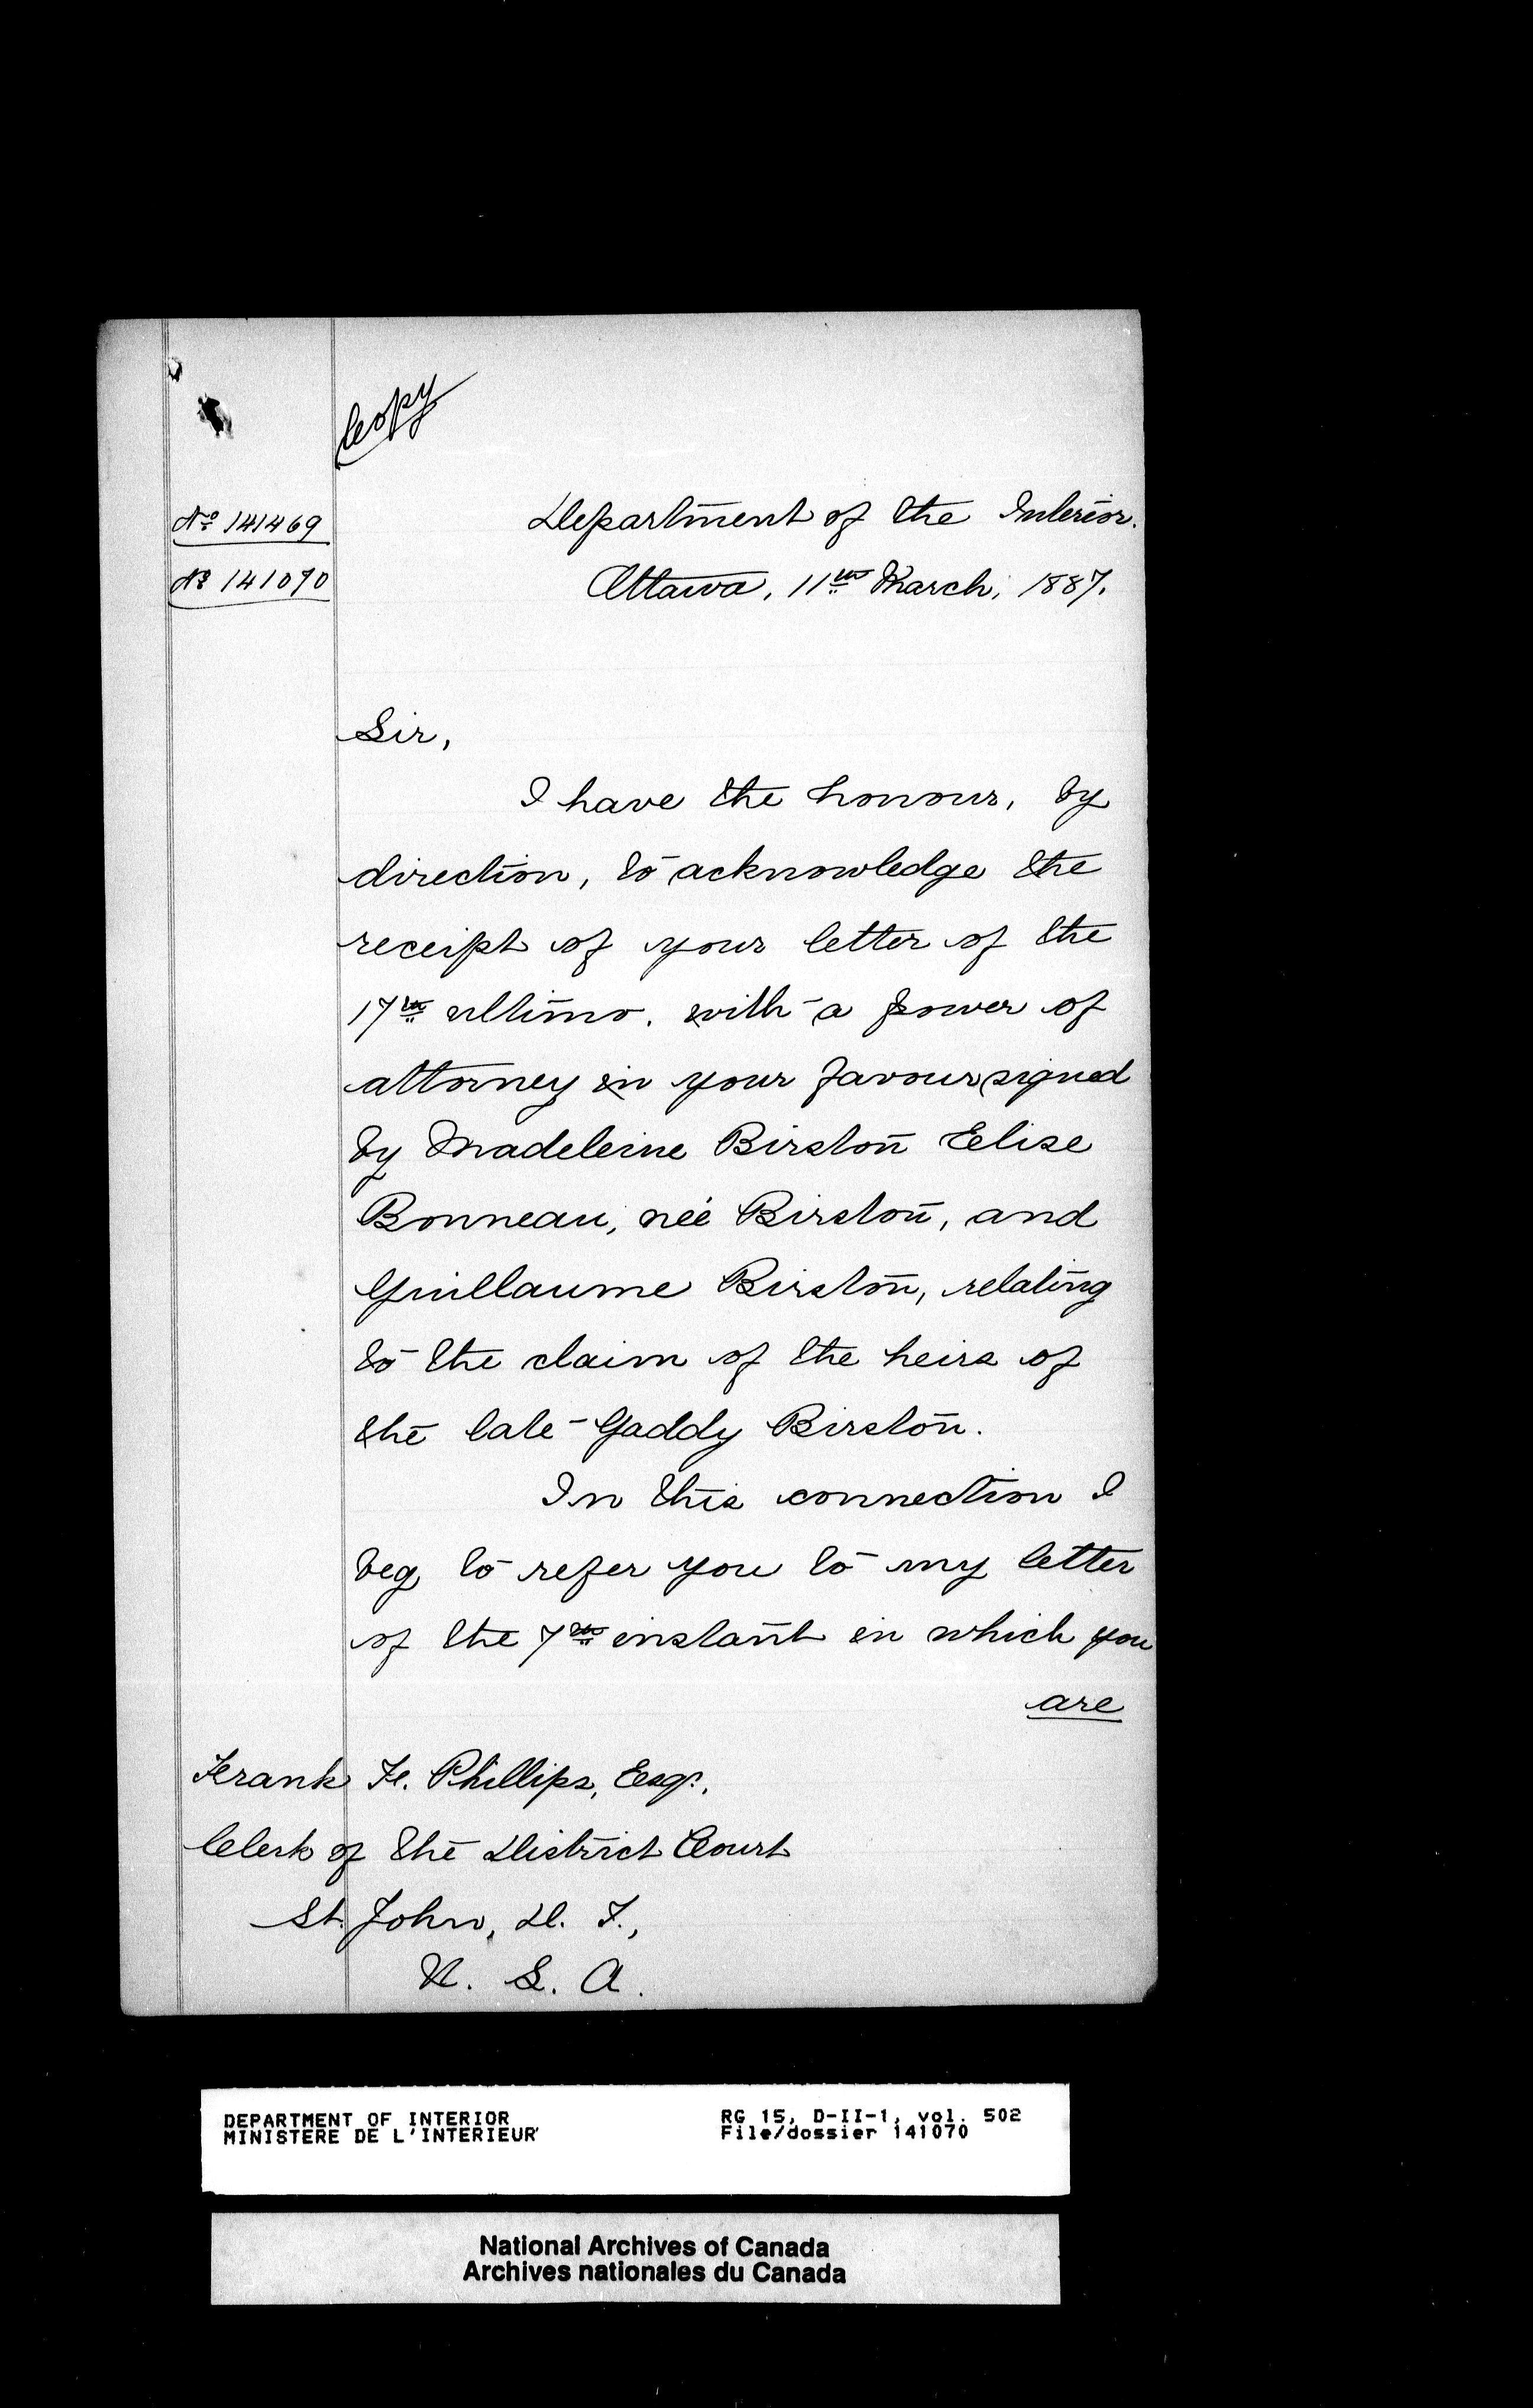 Copy
Department of the Interior.
Nº 141469
Ottawa, 11th March, 1887.
Nº 141070
Sir,
I have the honour, by
direction, to acknowledge the
receipt of your letter of the
17th ultimo. with a power of
attorney in your favour signed
by Madeleine Birston Elise
Bonneau, neé Birston, and
Guillaume Birston, relating
to the claim of the heirs of
the late Gaddy Birston.
In this connection I
beg to refer you to my letter
of the 7th instant in which you
are
Frank H. Phillips, Esqr.,
Clerk of the District Court
St. John, D. T.,
U. S. A.
DEPARTMENT OF INTERIOR RG 15, D-II-1, vol. 502
MINISTERE DE L'INTERIEUR File/dossier 141070
National Archives of Canada
Archives nationales du Canada